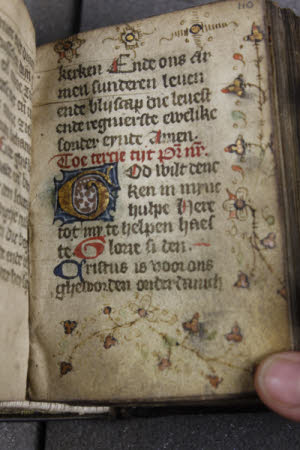 110
kerken Ende ons ar
men sunderen leuen
ende blyscap die leuest
ende regnierste ewelike
sonder eynde Amen.
Toe tercie tijt Pr nr.
God wilt denc
ken in myne
hulpe Here
tot my te helpen haes
te Glorie si den
Cristus is voor ons
gheworden onderdanich